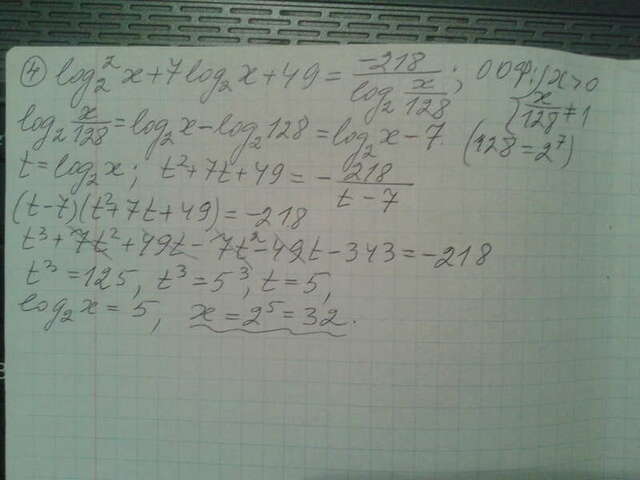 ④ log₂²x+7log₂x+49 = -218/(log₂ x/128); ООФ: {x>0
x/128≠1
log₂ x/128 = log₂x - log₂128 = log₂x - 7. (128=2⁷)
t=log₂x; t²+7t+49 = - 218/(t-7)
(t-7)(t²+7t+49) = -218
t³+7t²+49t-7t²-49t-343=-218
t³=125, t³=5³, t=5,
log₂x=5, x=2⁵=32.